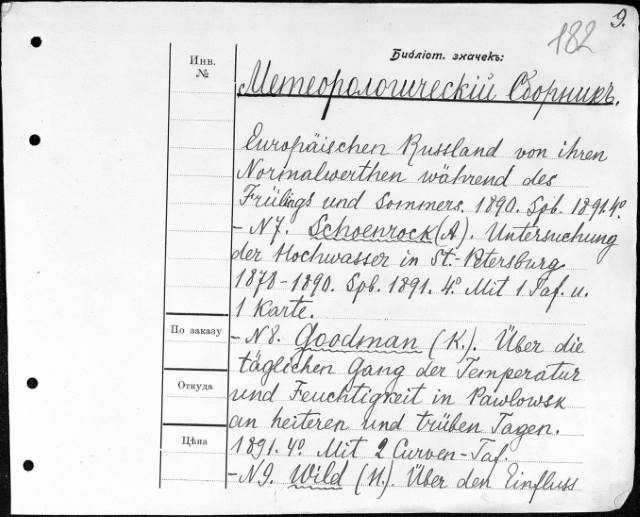 9.
182
Библіот. значекъ:
Инв.
№
Метеорологическій Сборникъ.
Europäischen Russland von ihren
Normalwerthen während des
Frülings und Sommers. 1890. Spb. 1891. 4°.
- N7. Schoenrock (A). Untersuchung
der Hochwasser in St.-Petersburg
1878-1890. Spb. 1891. 4° Mit 1 Taf. u.
1 Karte.
По заказу
- N8. Goodman (K.). Über die
täglichen Gang der Temperatur
Откуда
und Feuchtigkeit in Pawlowsk
an heiteren und trüben Tagen.
Цѣна
1891. 4° Mit 2 Curven-Taf.
- N9. Wild (H). Über den Einfluss